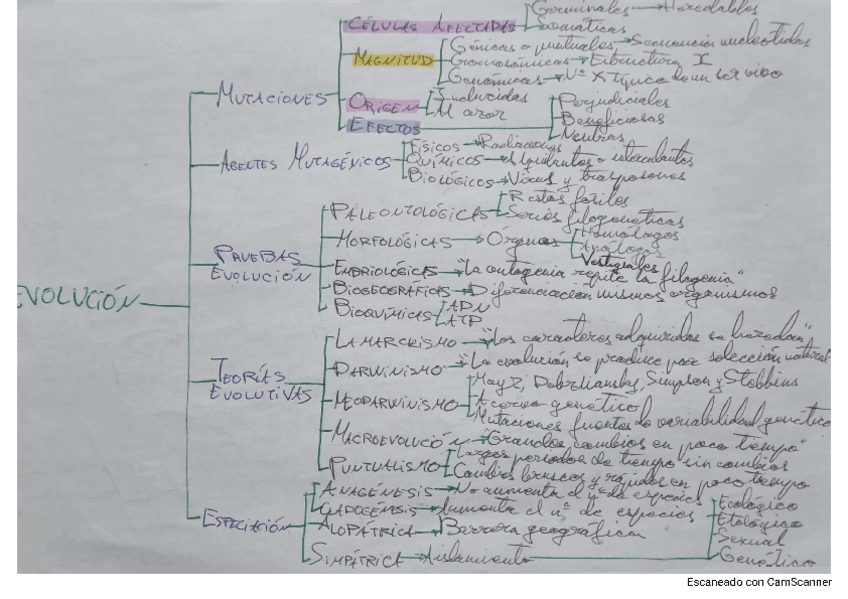 EVOLUCIÓN
MUTACIONES
CÉLULAS AFECTADAS
Germinales → Heredables
Somáticas
MAGNITUD
Génicas o puntuales → Secuencia nucleótidos
Cromosómicas → Estructura X
Genómicas → Nº X típico de un ser vivo
ORIGEN
Inducidas
Al azar
EFECTOS
Perjudiciales
Beneficiosas
Neutras
AGENTES MUTAGÉNICOS
Físicos → Radiaciones
QUÍMICOS → Alquilantes o intercalantes
BIOLÓGICOS → Virus y trasposones
PRUEBAS EVOLUCIÓN
PALEONTOLÓGICAS
Restos fósiles
Series filogenéticas
MORFOLÓGICAS → Órganos
Homólogos
Análogos
Vestigiales
EMBRIOLÓGICAS → "La ontogenia repite la filogenia"
BIOGEOGRÁFICAS → Diferenciación mismos organismos
BIOQUÍMICAS
ADN
ATP
TEORÍAS EVOLUTIVAS
LAMARCKISMO → "Los caracteres adquiridos se heredan"
DARWINISMO → "La evolución se produce por selección natural
NEODARWINISMO
Mayr, Dobzhansky, Simpson y Stebbins
Acervo genético
Mutaciones fuentes de variabilidad genética
MACROEVOLUCIÓN → "Grandes cambios en poco tiempo"
PUNTUALISMO
Largos periodos de tiempo sin cambios
Cambios bruscos y rápidos en poco tiempo
ESPECIACIÓN
ANAGÉNESIS → No aumenta el nº de especies
CLADOGÉNESIS → Aumenta el nº de especies
ALOPÁTRICA → Barrera geográfica
SIMPÁTRICA → Aislamiento
Ecológico
Etológico
Sexual
Genético
Escaneado con CamScanner